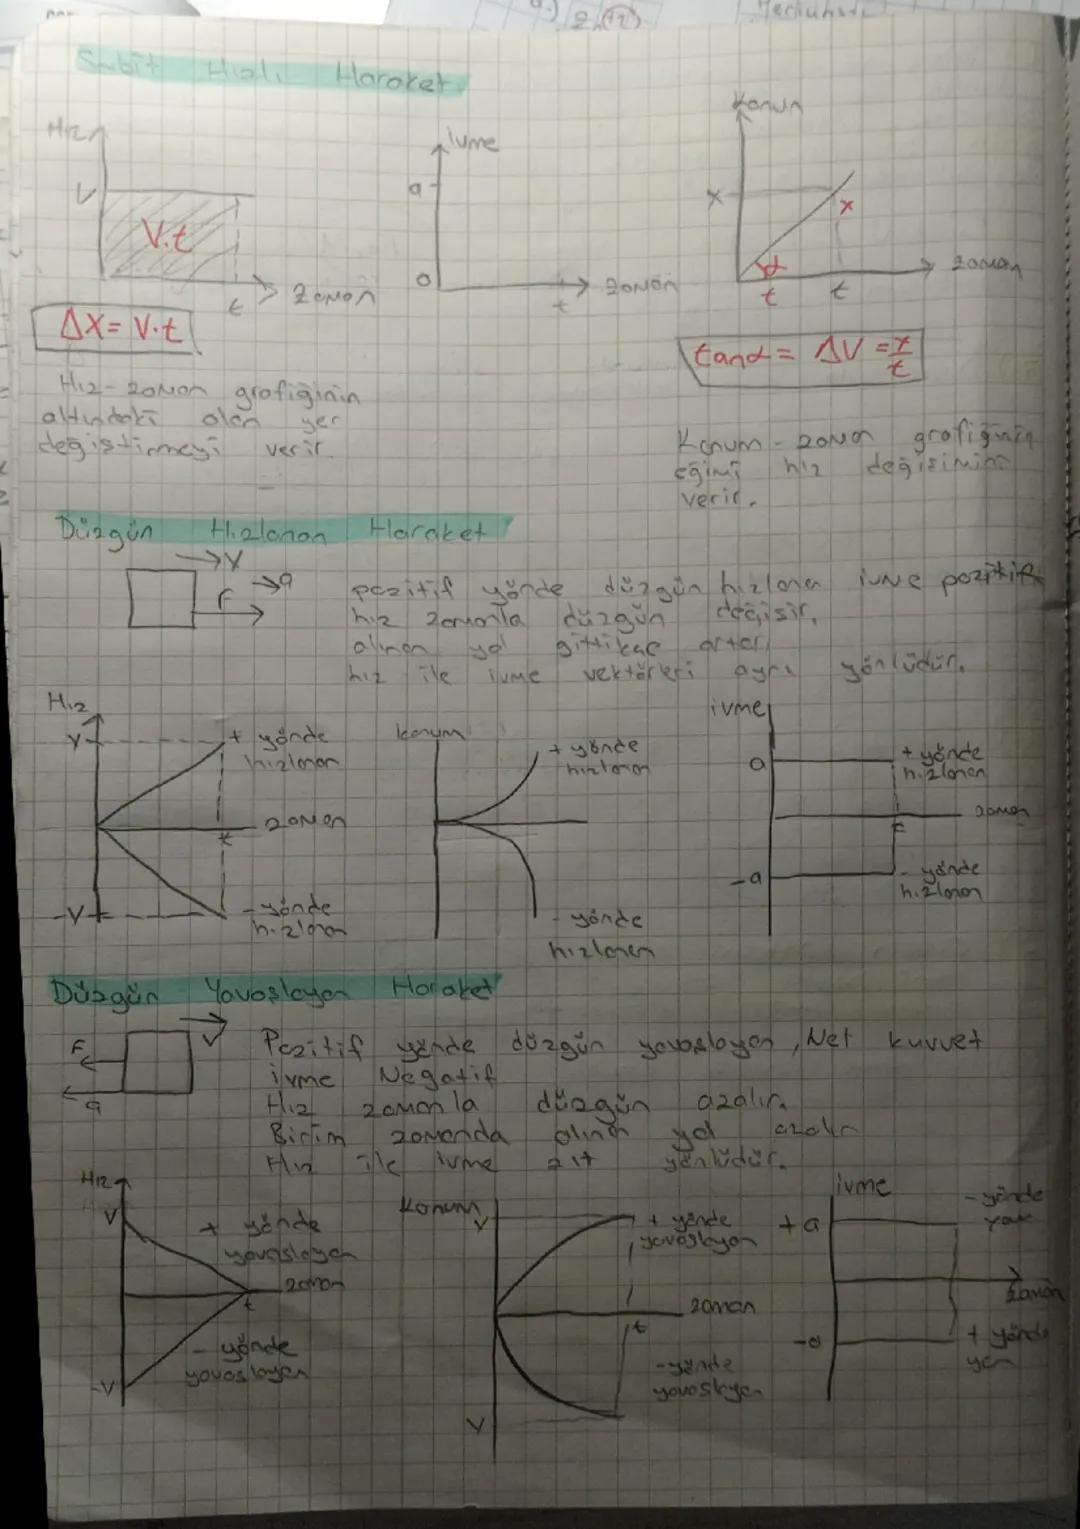 Sabit Hızlı Haraket
Hız
V
V.t
t
zaman
ΔX = V.t
Hız-zaman grafiğinin
altındaki alan yer
değiştirmeyi verir.
ivme
a
0
t
zaman
Konum
X
x
α
t
t
zaman
tanα = ΔV = x/t
Konum-zaman grafiğinin
eğimi hız değişimini
verir.
Düzgün Hızlanan Haraket
V
F
a
pozitif yönde düzgün hızlanan ivme pozitif
hız zamanla düzgün değişir,
alınan yol gittikçe artar,
hız ile ivme vektörleri aynı yönlüdür.
Hız
V
+ yönde
hızlanan
zaman
t
-V
- yönde
hızlanan
konum
+ yönde
hızlanan
- yönde
hızlanan
ivme
a
+ yönde
hızlanan
zaman
t
-a
- yönde
hızlanan
Düzgün Yavaşlayan Haraket
V
F
a
Pozitif yönde düzgün yavaşlayan, Net kuvvet
ivme Negatif
Hız zamanla düzgün azalır.
Birim zamanda alınan yol azalır
Hız ile ivme zıt yönlüdür.
Hız
V
+ yönde
yavaşlayan
zaman
t
- yönde
yavaşlayan
-V
Konum
V
+ yönde
yavaşlayan
zaman
t
- yönde
yavaşlayan
V
ivme
+a
- yönde
yav
zaman
-a
+ yönde